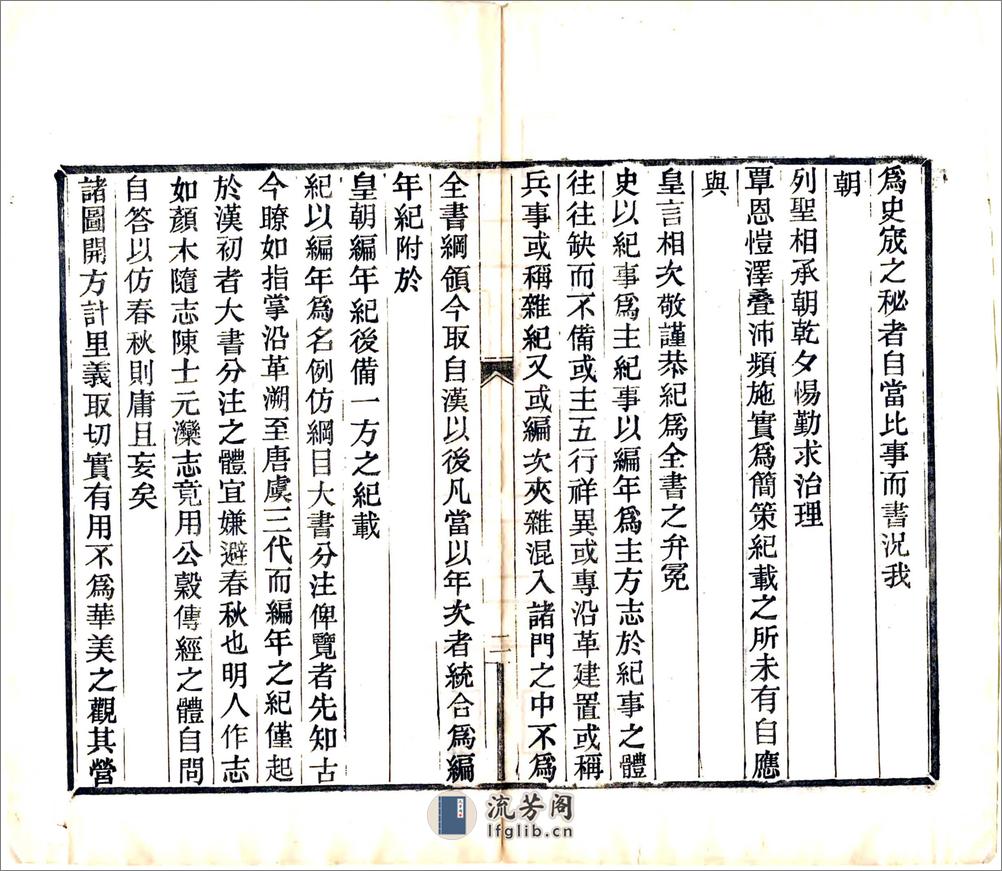 爲史宬之秘者自當比事而書況我
朝
列聖相承朝乾夕惕勤求治理
覃恩愷澤叠沛頻施實爲簡策紀載之所未有自應
與
皇言相次敬謹恭紀爲全書之弁冕
史以紀事爲主紀事以編年爲主方志於紀事之體
往往缺而不備或主五行祥異或專沿革建置或稱
兵事或稱雜紀又或編次夾雜混入諸門之中不爲
二
全書綱領今取自漢以後凡當以年次者統合爲編
年紀附於
皇朝編年紀後備一方之紀載
紀以編年爲名例仿綱目大書分注俾覽者先知古
今瞭如指掌沿革溯至唐虞三代而編年之紀僅起
於漢初者大書分注之體宜嫌避春秋也明人作志
如顏木隨志陳士元灤志竟用公穀傳經之體自問
自答以仿春秋則庸且妄矣
諸圖開方計里義取切實有用不爲華美之觀其營
流芳阁
lfglib.cn